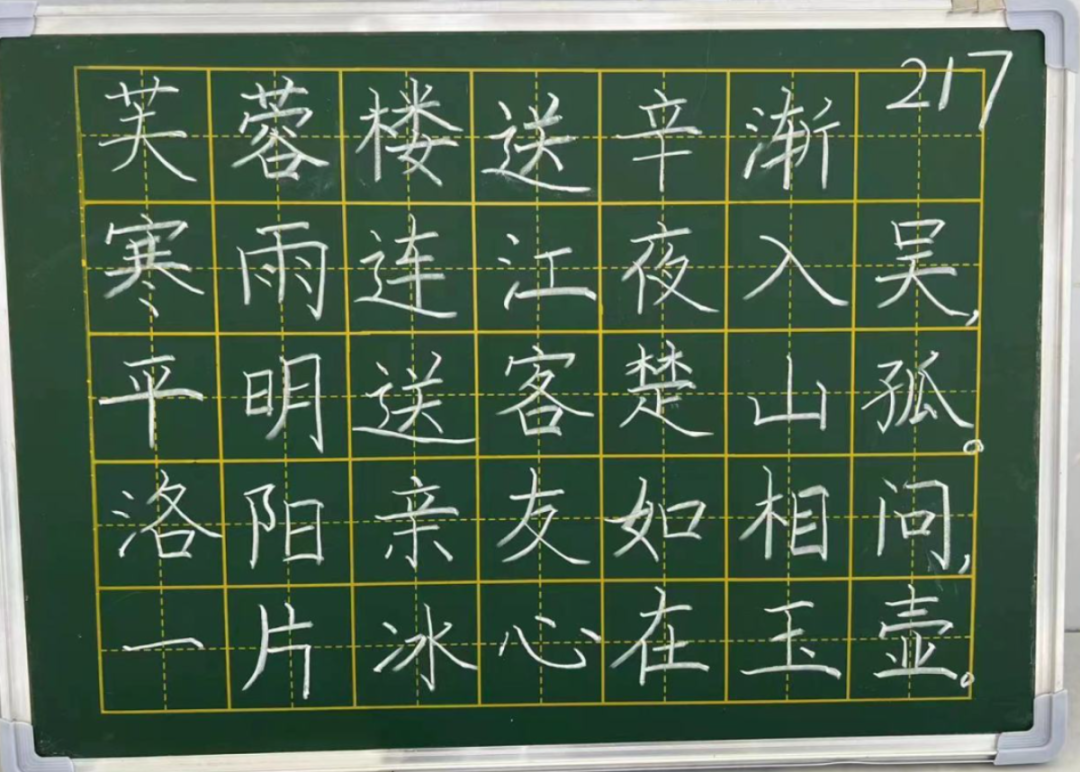 芙蓉楼送辛渐 217
寒雨连江夜入吴,
平明送客楚山孤。
洛阳亲友如相问,
一片冰心在玉壶。